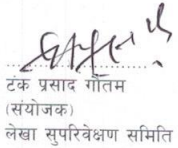 टंक प्रसाद गौतम
(संयोजक)
लेखा सुपरिवेक्षण समिति